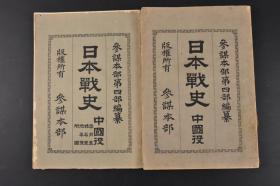 參謀本部第四部編纂
日本戰史 中國役
版權所有 參謀本部
參謀本部第四部編纂
日本戰史 中國役
版權所有 參謀本部